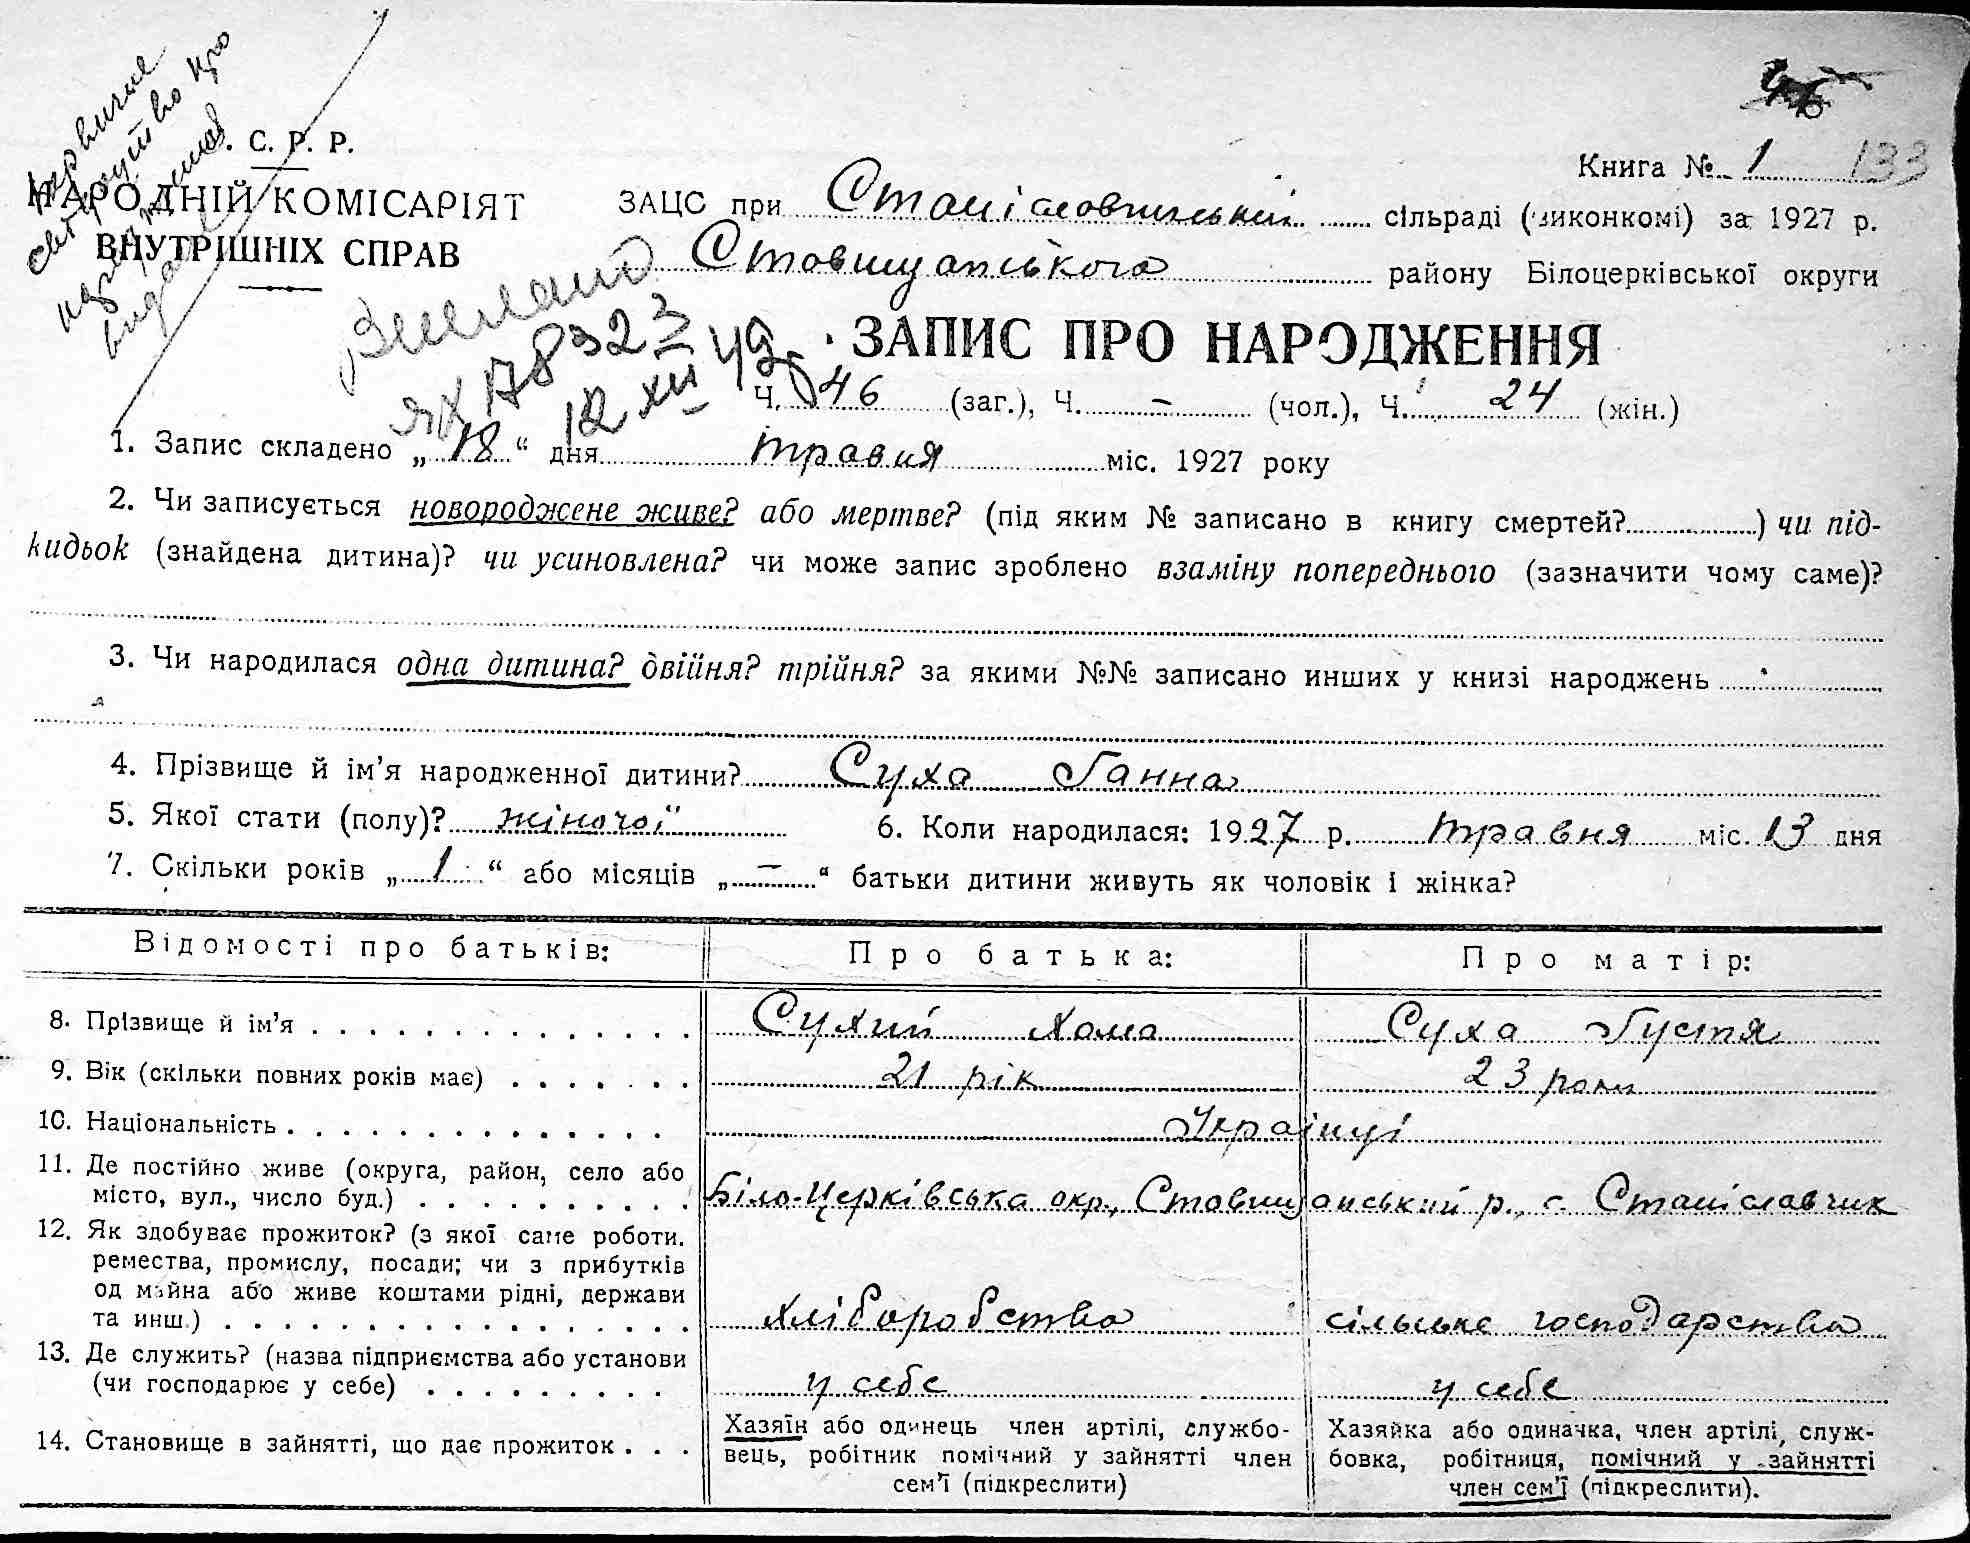 Первичне
свідоцтво про
народження
видав
. С. Р. Р.
НАРОДНІЙ КОМІСАРІЯТ
ВНУТРІШНІХ СПРАВ
Книга № 1 133
ЗАЦС при Станіславчицькій сільраді (виконкомі) за 1927 р.
Стовищанського району Білоцерківської округи
ЗАПИС ПРО НАРОДЖЕННЯ
12 XII 49
Ч. 46 (заг.), Ч. – (чол.), Ч. 24 (жін.)
1. Запис складено „18“ дня травня міс. 1927 року
2. Чи записується новороджене живе? або мертве? (під яким № записано в книгу смертей? ) чи під-
кидьок (знайдена дитина)? чи усиновлена? чи може запис зроблено взаміну попереднього (зазначити чому саме)?
3. Чи народилася одна дитина? двійня? трійня? за якими №№ записано инших у книзі народжень
4. Прізвище й ім’я народженної дитини? Суха Ганна
5. Якої стати (полу)? жіночої 6. Коли народилася: 1927 р. травня міс. 13 дня
7. Скільки років „1“ або місяців „–“ батьки дитини живуть як чоловік і жінка?
Відомості про батьків: Про батька: Про матір:
8. Прізвище й ім’я Сухий Хома Суха Густя
9. Вік (скільки повних років має) 21 рік 23 роки
10. Національність Українці
11. Де постійно живе (округа, район, село або
місто, вул., число буд.) Біло-Церківська окр., Стовищанський р., с. Станіславчик
12. Як здобуває прожиток? (з якої саме роботи.
ремества, промислу, посади; чи з прибутків
од майна або живе коштами рідні, держави
та инш.) хліборобство сільське господарство
13. Де служить? (назва підприємства або установи
(чи господарює у себе) у себе у себе
14. Становище в зайнятті, що дає прожиток
Хазяїн або одинець член артілі, службо-
вець, робітник помічний у зайнятті член
сем’ї (підкреслити)
Хазяйка або одиначка, член артілі, служ-
бовка, робітниця, помічний у зайнятті
член сем’ї (підкреслити).